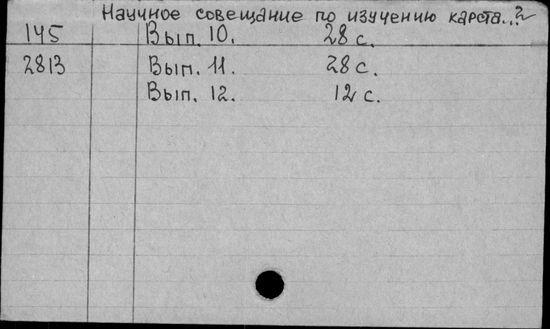 Научное совещание по изучению карста...2
145 Вып. 10. 28 с.
2813 Вып. 11. 28 с.
Вып. 12. 12 с.